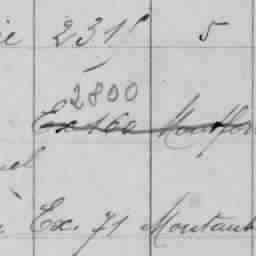 ie 231e 5
2800
Ex 160 Montfor
el
Ex. 71 Montaub